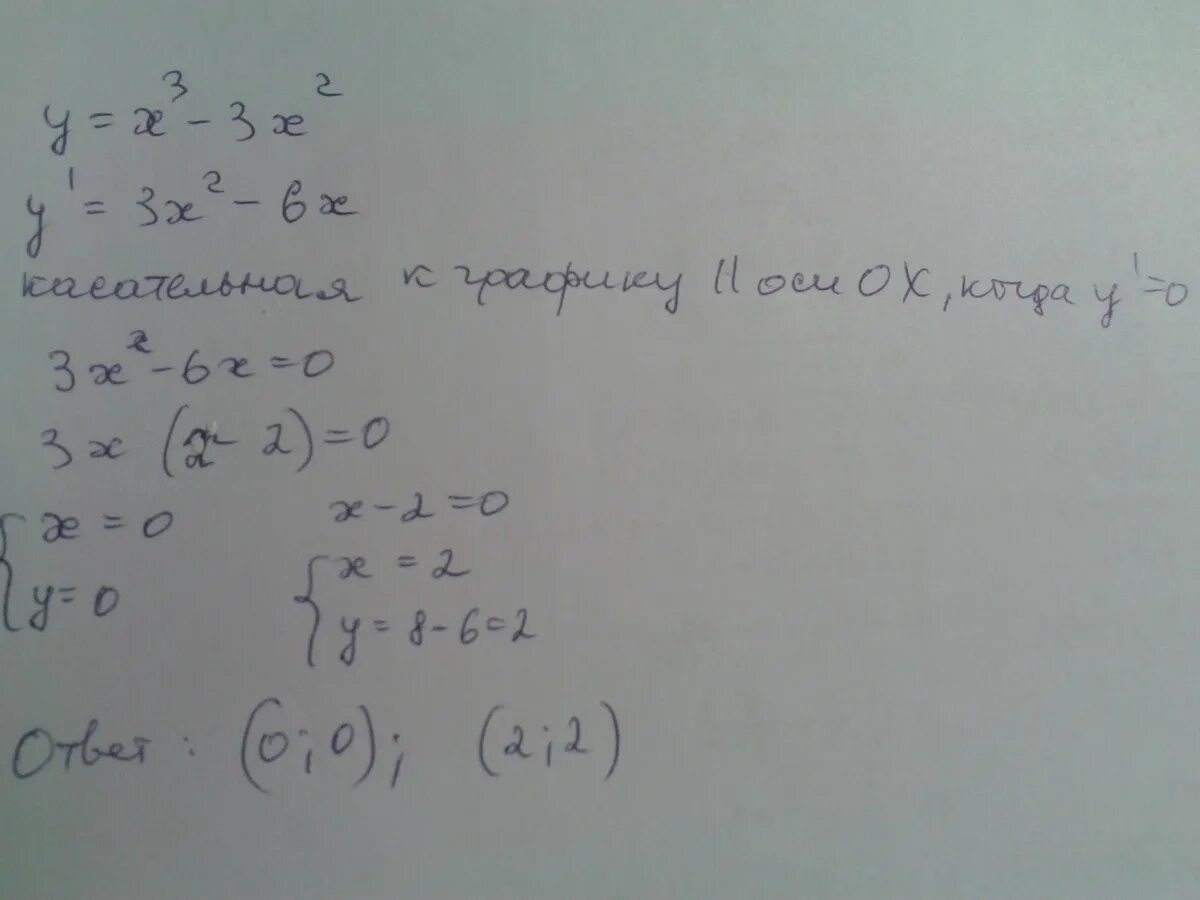 y = x³ - 3x²
y' = 3x² - 6x
касательная к графику || оси OX, когда y' = 0
3x² - 6x = 0
3x (x - 2) = 0
{ x = 0
y = 0
x - 2 = 0
{ x = 2
y = 8 - 6 = 2
Ответ: (0; 0); (2; 2)